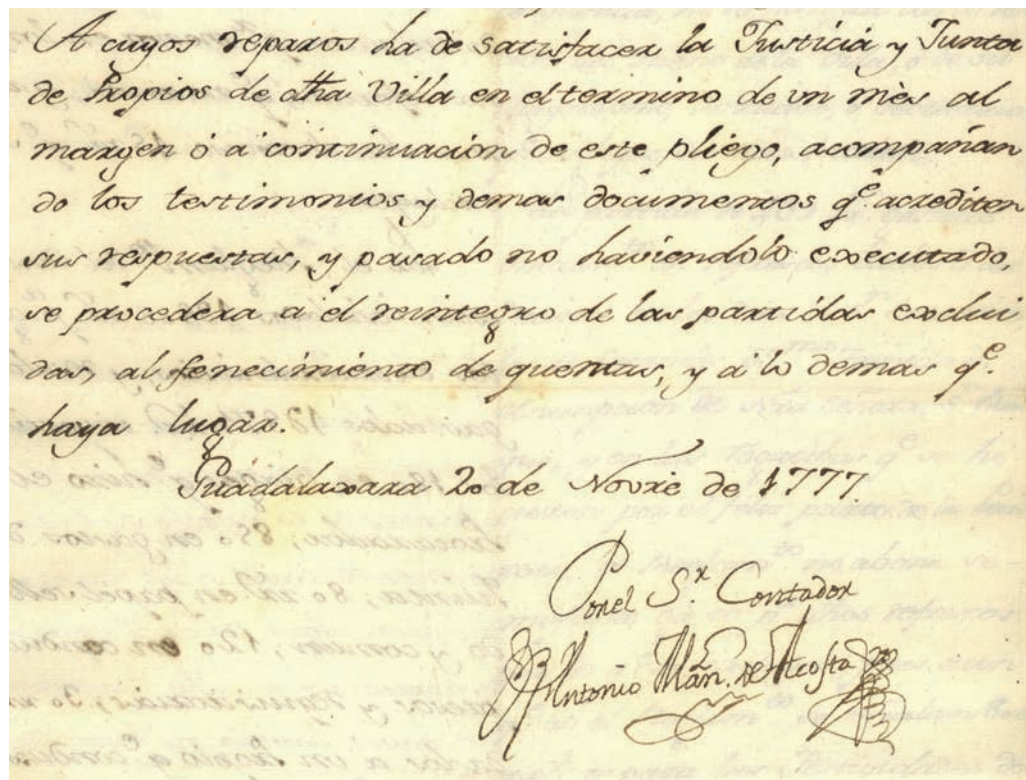 A cuyos reparos ha de satisfacer la Justicia y Junta
de Propios de dha Villa en el termino de un mès al
margen ó a continuacion de este pliego, acompañan
do los testimonios y demas documentos q.e acrediten
sus respuestas, y pasado no haviendolo executado,
se procedera a el reintegro de las partidas exclui
das, al fenecimiento de quentas, y á lo demas q.e
haya lugár.
Guadalaxara 20 de Novre de 1777.
Por el S.r Contador
Antonio Man. de Acosta